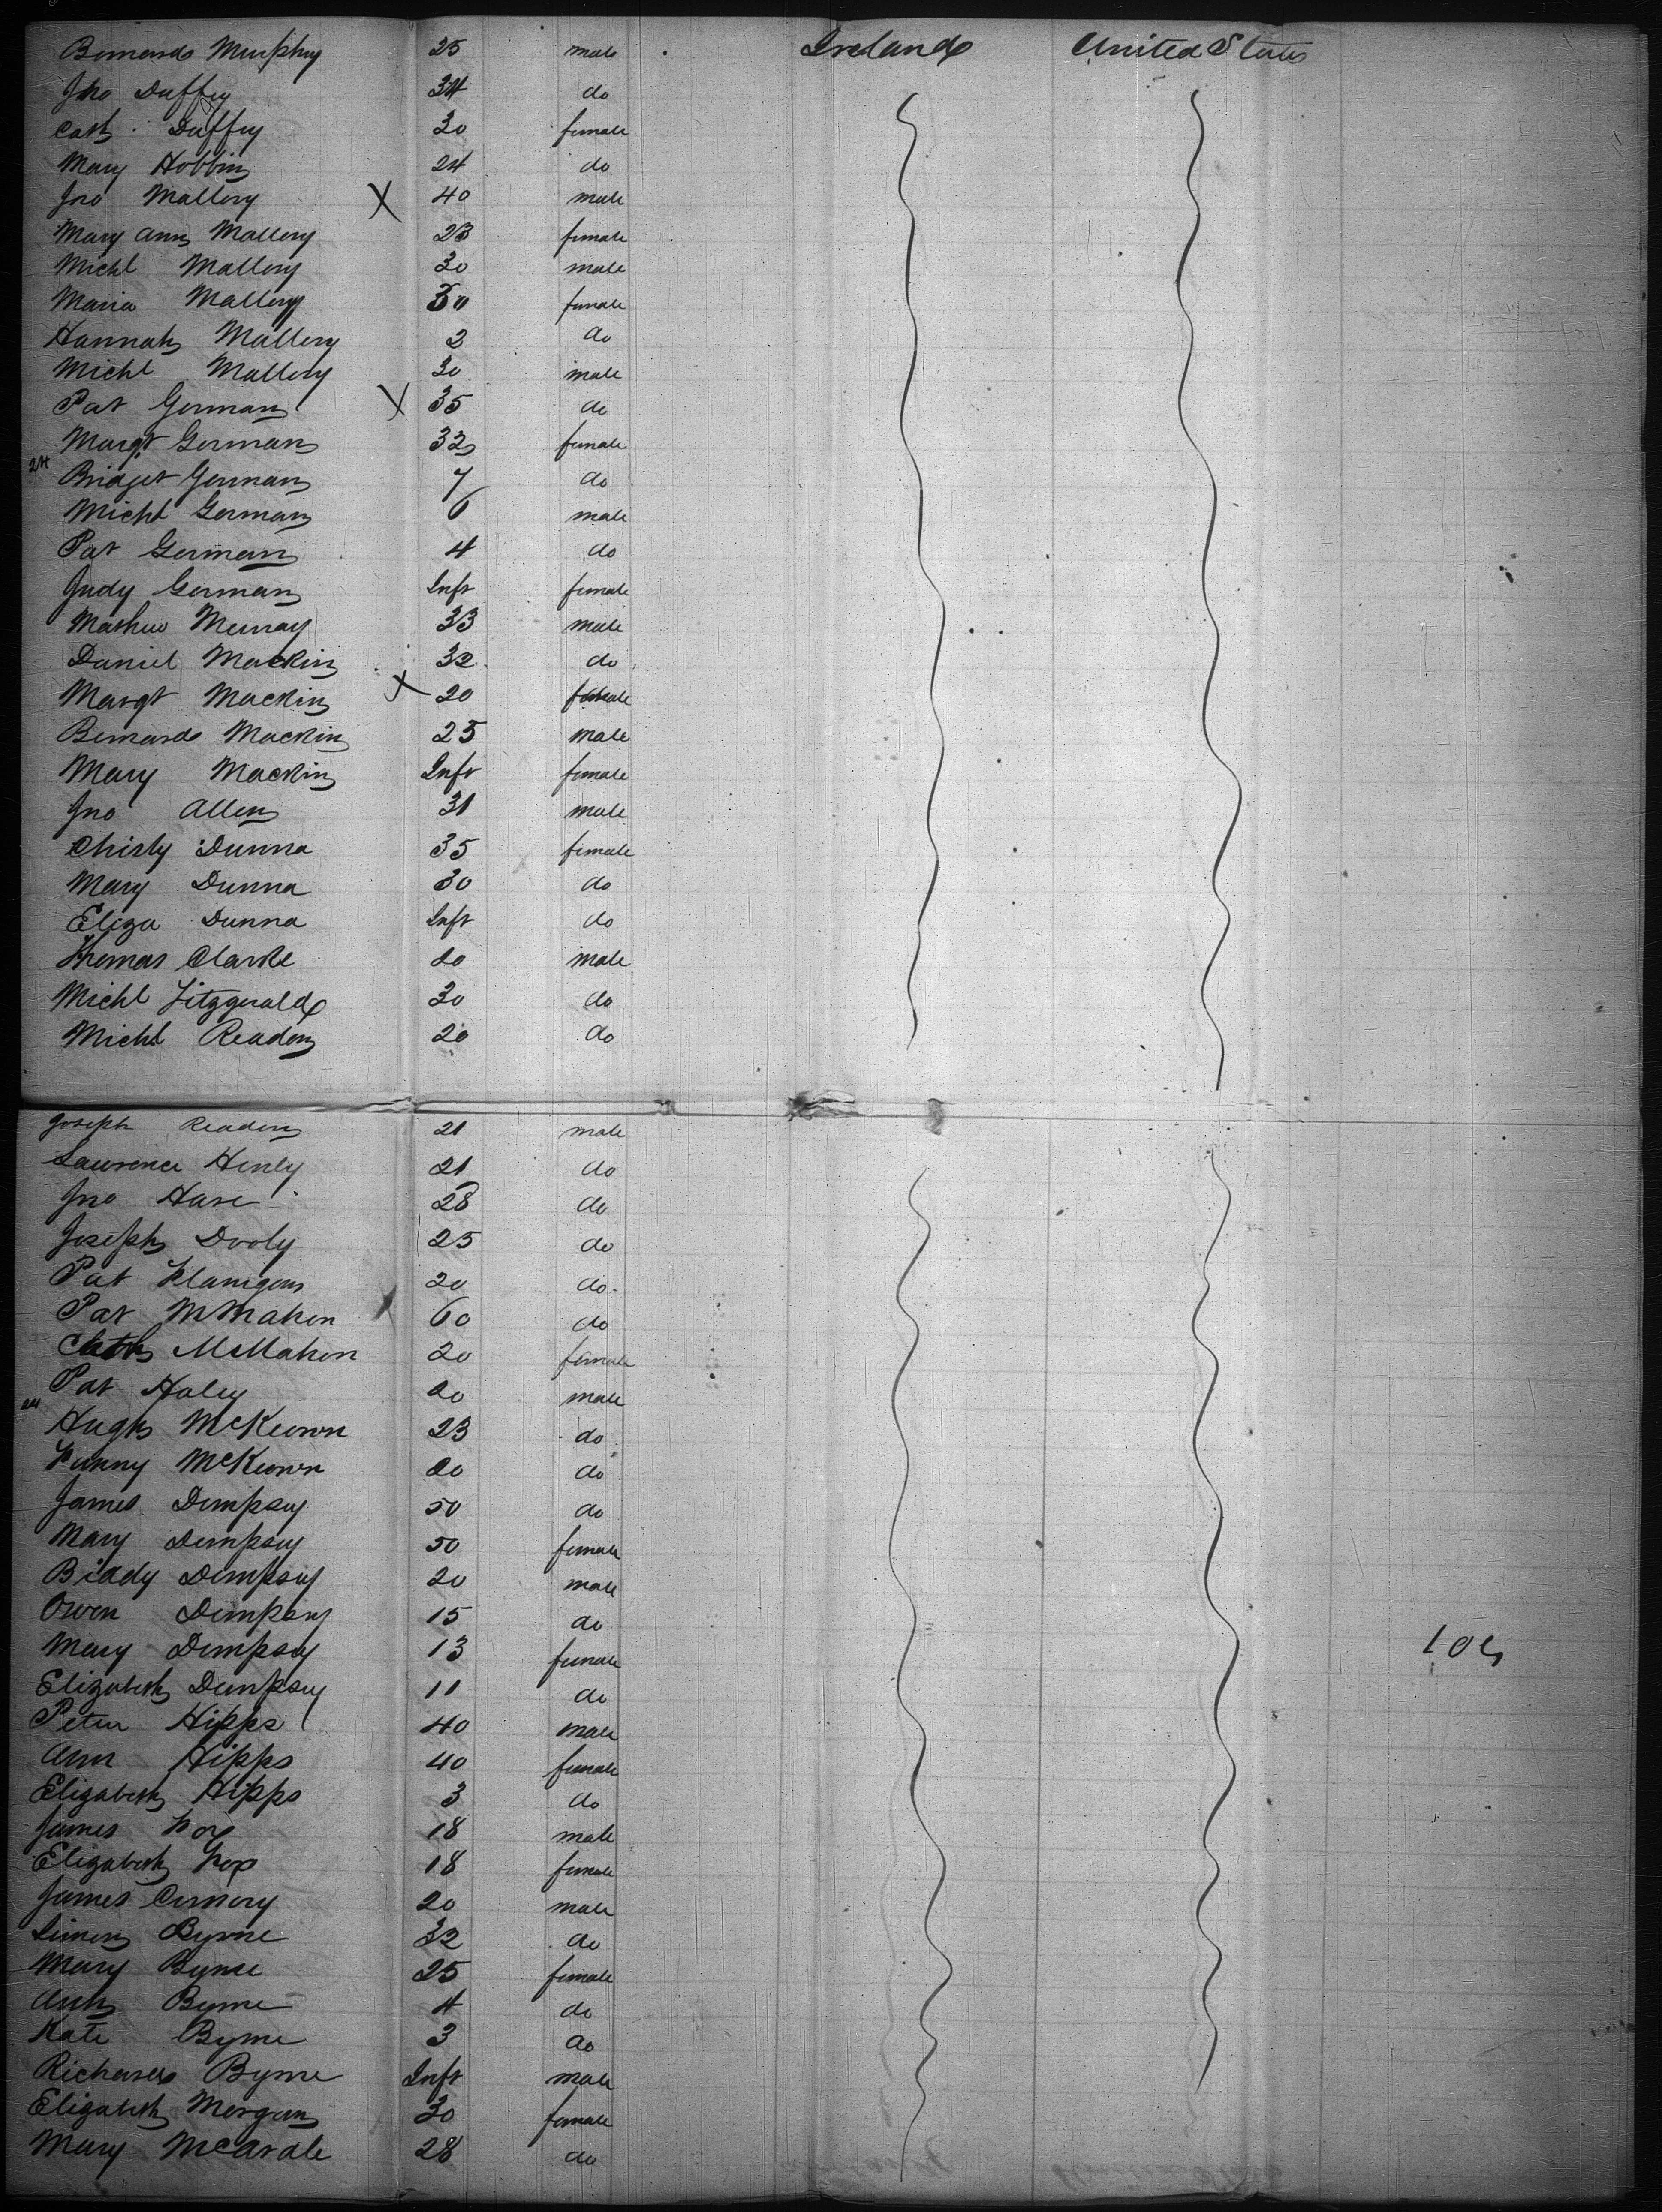 Bernard Murphy 25 male Ireland United States
Jno Duffy 34 do
Cath Duffy 30 female
Mary Hobbin 24 do
Jno Mallory X 40 male
Mary Ann Mallory 23 female
Michl Mallory 30 male
Maria Mallory 30 female
Hannah Mallory 2 do
Michl Mallory 30 male
Pat German X 35 do
Margt German 32 female
24 Bridget German 7 do
Michl German 6 male
Pat German 4 do
Judy German Inft female
Mathew Murray 33 male
Daniel Mackin 32 do
Margt Mackin X 20 female
Bernard Mackin 25 male
Mary Mackin Inft female
Jno Allen 31 male
Christy Dunna 35 female
Mary Dunna 30 do
Eliza Dunna Inft do
Thomas Clarke 20 male
Michl Fitzgerald 30 do
Michl Readon 20 do
Joseph Readon 21 male
Lawrence Henly 21 do
Jno Hare 28 do
Joseph Dooly 25 do
Pat Flanigan 20 do
Pat McMahon 60 do
Cath McMahon 20 female
Pat Haley 20 male
Hugh McKeown 23 do
Fanny McKeown 20 do
James Dempsey 50 do
Mary Dempsey 50 female
Biddy Dempsey 20 male
Owen Dempsey 15 do
Mary Dempsey 13 female
Elizabeth Dempsey 11 do
Peter Hipps 40 male
Ann Hipps 40 female
Elizabeth Hipps 3 do
James Fox 18 male
Elizabeth Fox 18 female
James 20 male
Simon Byrne 32 do
Mary Byrne 25 female
Ann Byrne 4 do
Kate Byrne 3 do
Richard Byrne Inft male
Elizabeth Morgan 30 female
Mary McArdle 28 do